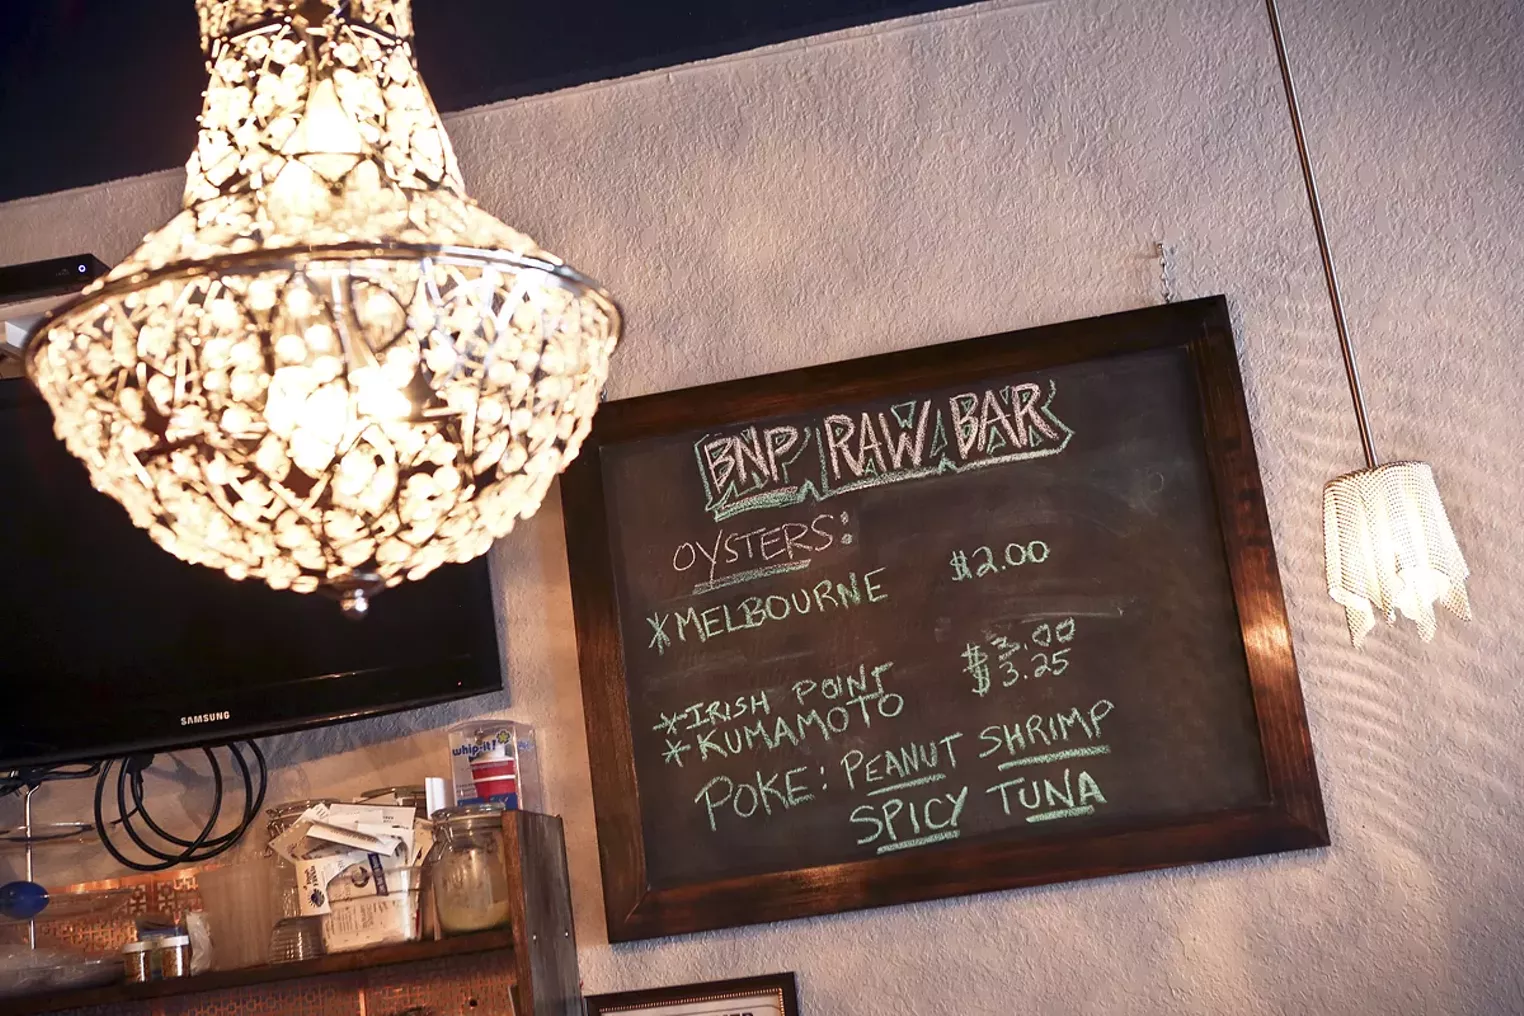 BNP RAW BAR
OYSTERS:
*MELBOURNE $2.00
*IRISH POINT $3.00
*KUMAMOTO $3.25
POKE: PEANUT SHRIMP
SPICY TUNA
SAMSUNG
whip-it!